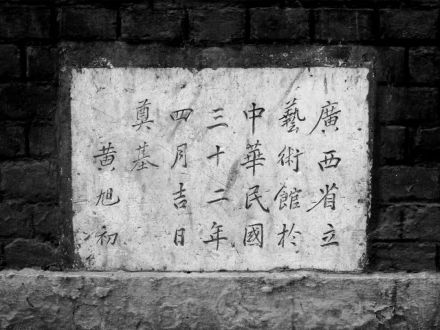 廣西省立
藝術館於
中華民國
三十二年
四月吉日
奠基
黄旭初